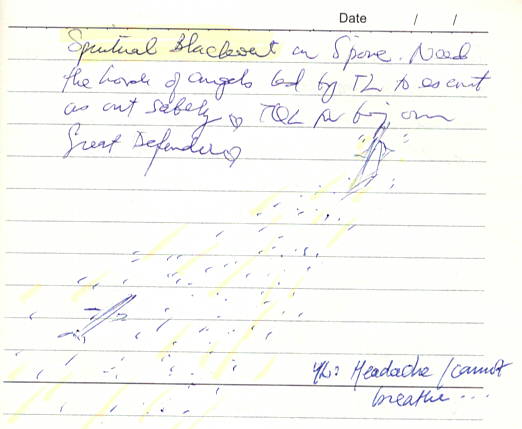 Date / /
Spiritual Blackout in Spore. Need
the horde of angels led by TL to escort
us out safely ♡ TQL for being our
Great Defender ♡
YL: Headache / cannot
breathe ...